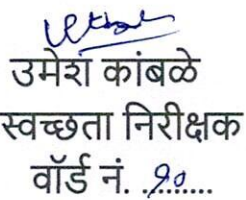 उमेश कांबळे
स्वच्छता निरीक्षक
वॉर्ड नं. .१०......